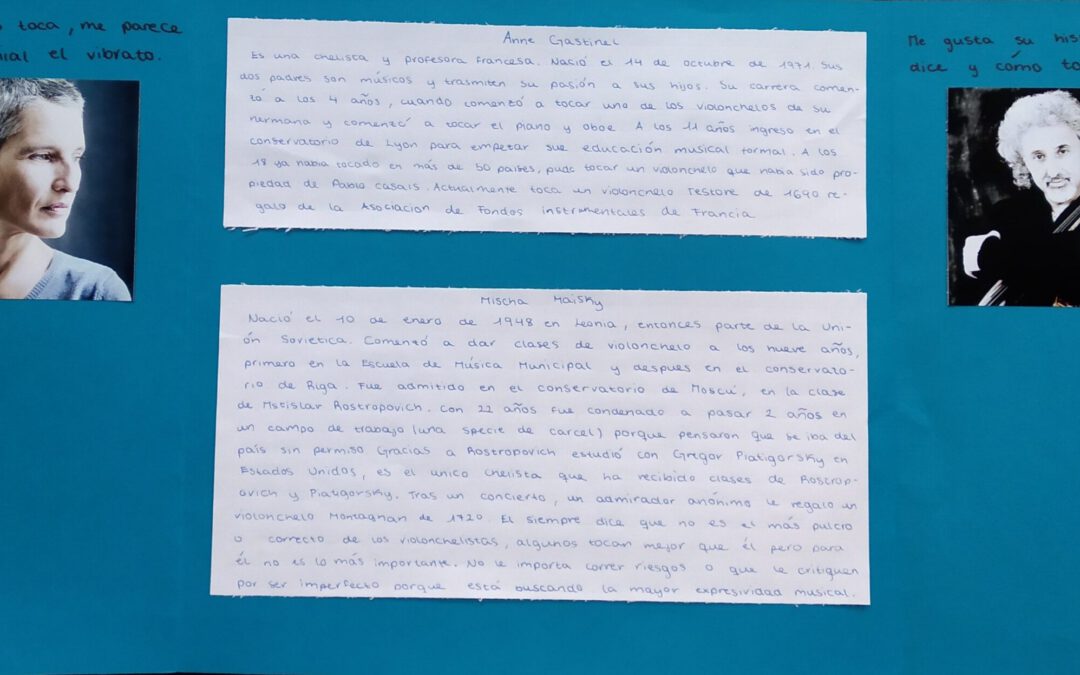 toca, me parece
el vibrato.
Anne Gastinel
Es una chelista y profesora francesa. Nació el 14 de octubre de 1971. Sus
dos padres son músicos y trasmiten su pasión a sus hijos. Su carrera comen-
zó a los 4 años, cuando comenzó a tocar uno de los violonchelos de su
hermana y comenzó a tocar el piano y oboe. A los 11 años ingreso en el
conservatorio de Lyon para empezar sue educación musical formal. A los
18 ya habia tocado en más de 50 países, pudo tocar un violonchelo que habia sido pro-
piedad de Pablo casals. Actualmente toca un violonchelo Testore de 1690 re-
galo de la Asociacion de Fondos instrumentales de Francia
Mischa Maisky
Nació el 10 de enero de 1948 en Leonia, entonces parte de la Uni-
ón Sovietica. Comenzó a dar clases de violonchelo a los nueve años,
primero en la Escuela de Música Municipal y despues en el conservato-
rio de Riga. Fue admitido en el conservatorio de Moscú, en la clase
de Mstislav Rostropovich. Con 22 años fue condenado a pasar 2 años en
un campo de trabajo (una specie de carcel) porque pensaron que se iba del
país sin permiso Gracias a Rostropovich estudió con Gregor Piatigorsky en
Estados Unidos, es el unico chelista que ha recibido clases de Rostrop-
ovich y Piatigorsky. Tras un concierto, un admirador anónimo le regalo un
violonchelo Montagnan de 1720 El siempre dice que no es el más pulcro
o correcto de los violonchelistas, algunos tocan mejor que él pero para
él no es lo más importante. No le importa correr riesgos o que le critiquen
por ser imperfecto porque está buscando la mayor expresividad musical.
Me gusta su his
dice y cómo to